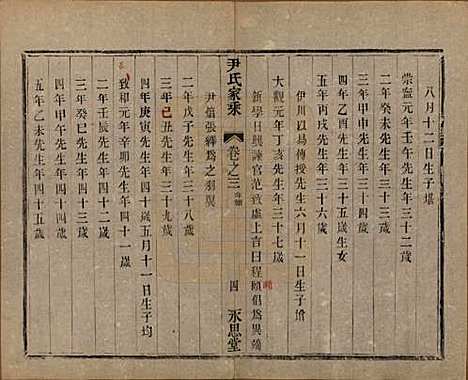 八月十二日生子堪
崇寧元年壬午先生年三十二歲
二年癸未先生年三十三歲
三年甲申先生年三十四歲
四年乙酉先生年三十五歲生女
五年丙戌先生年三十六歲
伊川以易傳授先生六月十一日生子
大觀元年丁亥先生年三十七歲
新學日興諫官范致虛上言曰程頤倡為異端
尹焞張繹為之羽翼
尹氏家乘
卷之三
四
永思堂
二年戊子先生年三十八歲
三年己丑先生年三十九歲
四年庚寅先生年四十歲五月十一日生子均
政和元年辛卯先生年四十一歲
二年壬辰先生年四十二歲
三年癸巳先生年四十三歲
四年甲午先生年四十四歲
五年乙未先生年四十五歲